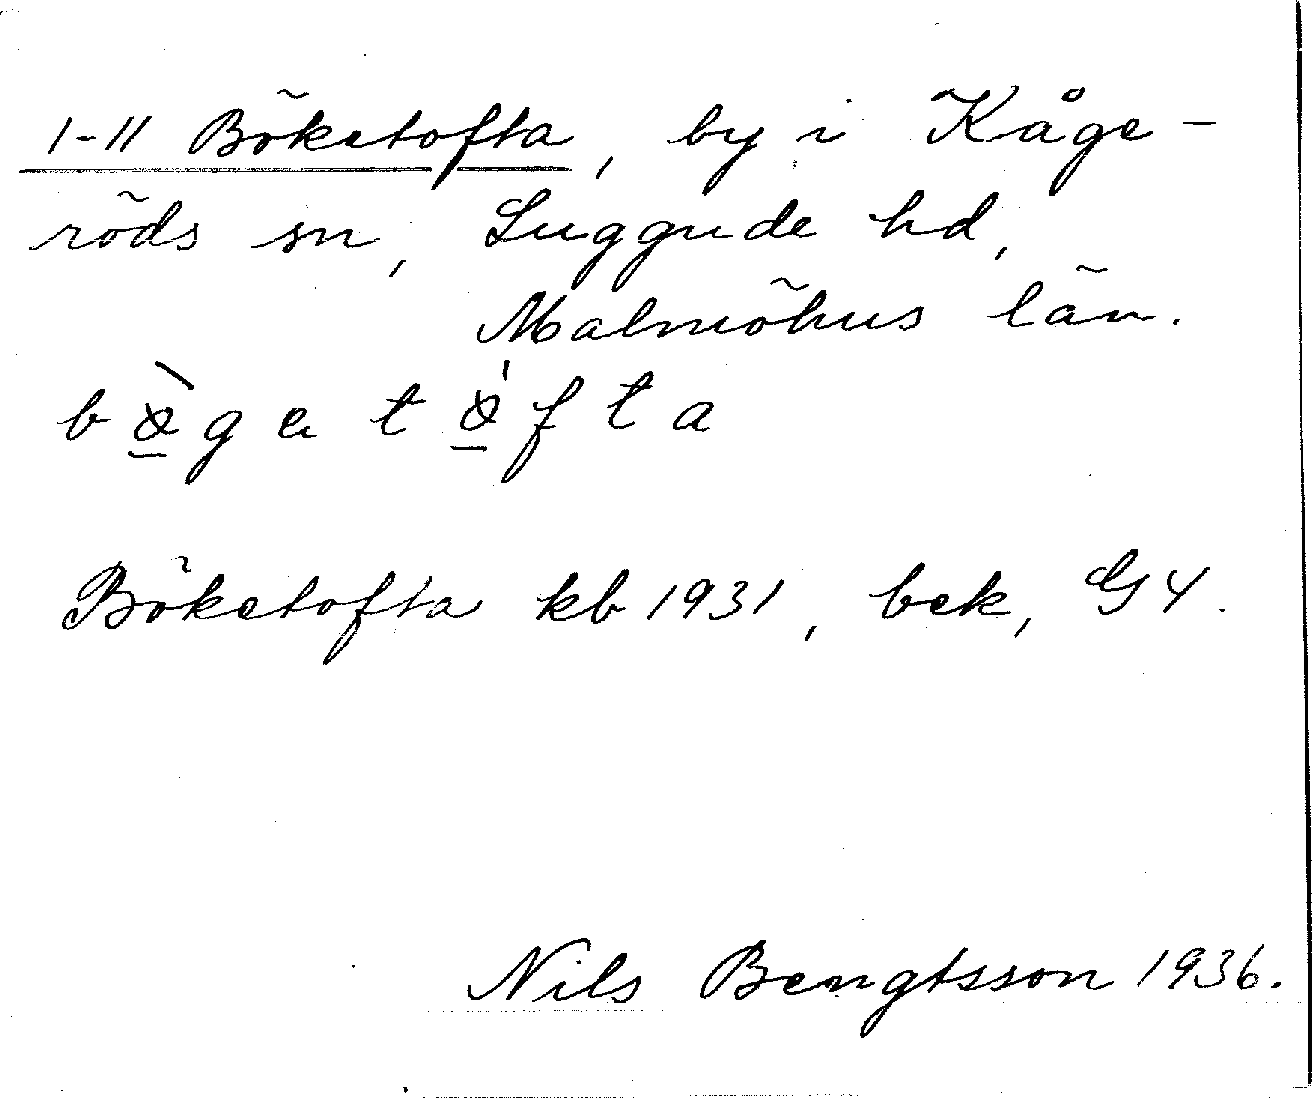 1-11 Böketofta, by i Kåge-
röds sn, Luggude hd,
Malmöhus län.
Böketofta kb 1931, bek, G4.
Nils Bengtsson 1936.